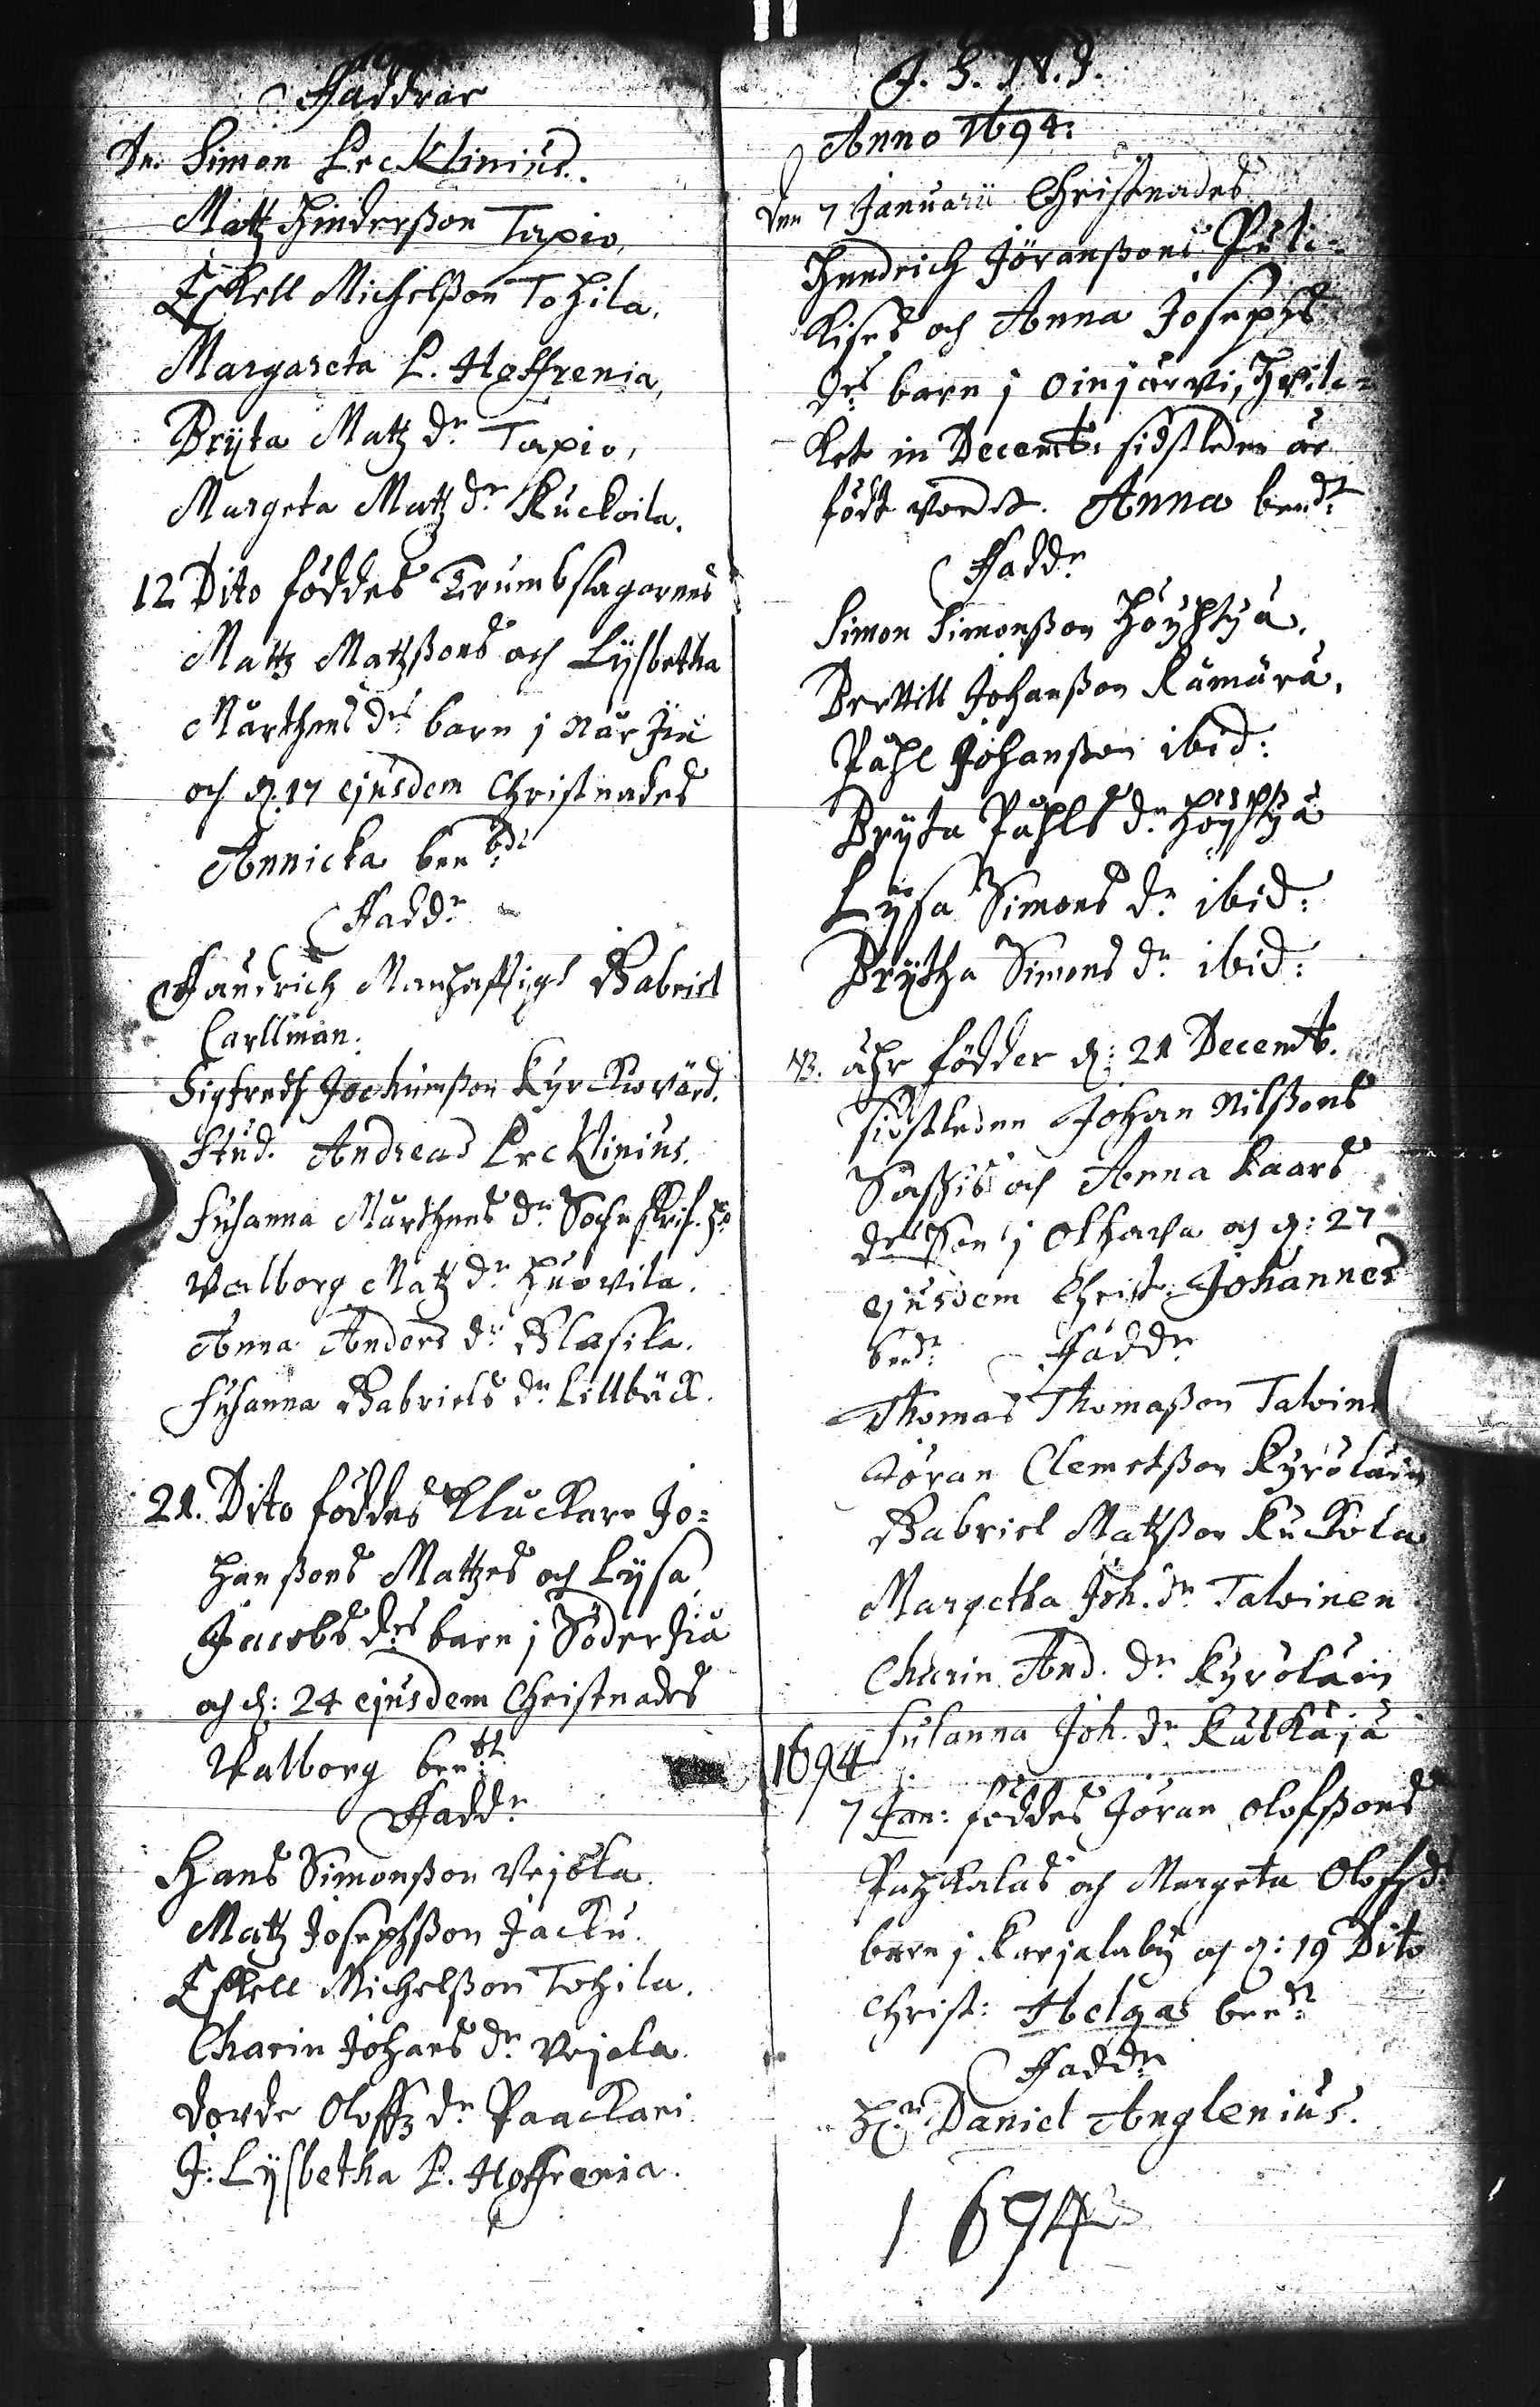 Faddrar
Dn. Simon Lecktinius.
Matz Hinderßon Tapio,
Eskell Michelßon Tohila,
Margareta L. Hoffrenia,
Brÿta Matz dr Tapio,
Margeta Matz dr Kuckoila.
12 Dito föddes Trumbslagarens
Mattz Matzßons och Lÿsbetha
Mårthens drs barn j När Jiå
och d. 17 ejusdem Christnades
Annicka ben
Faddr
Fändrich Manhafftigh Gabriel
Carllman.
Sigfredh Jochimßon Kyrckiowärd.
Stud. Andreas Lecktinius.
Susanna Mårthens dr
Valborg Matz dr Huovila.
Anna Anders dr Blasika.
Susanna Gabriels dr Lillbäck.
21. Dito föddes Kluckare Jo=
hanßons Mattzes och Lÿsa
Jacobs drs barn j Söder Jiå
och d: 24 ejusdem Christnades
Valborg ben
Faddr
Hans Simonßon Vejola.
Matz Josephßon Jacku.
Eskell Michelßon Tohila.
Charin Johans dr Vejola.
Dorde Oloffz dr Paackari
J: Lÿsbetha L. Hoffrenia.
J. H. N. J.
Anno 1694:
Den 7 Januarii Christnades
Hendrich Jöranßons
och Anna Josephs
drs barn j Oinjärvi, Hvil=
ket in Decemb: sidstleden är
födt vordt. Anna bendt
Faddr
Simon Simonßon Höyhtyä.
Berttill Johanßon Kämärä.
Påhl Johanßon ibid:
Brÿta Påhls dr Höyhtyä
Lÿsa Simons dr ibid:
Brÿtha Simons dr ibid:
NB. ähr födder d: 21 Decemb.
sidstleden Johan Nilßons
och Anna Laars
drs Son j Olhava och d: 27
ejusdem Christ: Johannes
bendr Faddr
Thomas Thomaßon Talvin
Jöran Clemetßon Kyröläin
Gabriel Matzßon Kuckola
Margetha Joh. dr Talvinen
Charin And. dr Kyröläin
Susanna Joh. dr Kutkäjä
1694
7 Jan: föddes Jöran Olofßons
och Margeta Olofsd.
barn j Karjalaby och d: 19 Dito
Christ: Helga ben
Faddr
Hr Daniel Anglenius.
1694